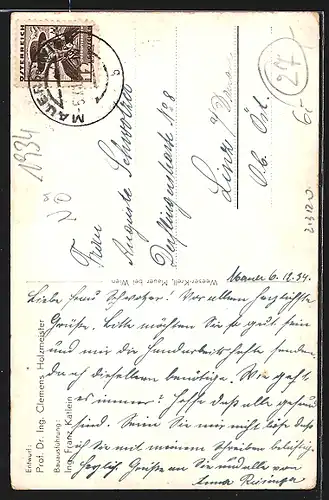 ÖSTERREICH
MAUER
1934
NÖ
27
6/-
Frau
Auguste Schwotzer
Derfflingerstraße No 8
Linz a/Donau
Ob. Öst.
Weeser-Krell, Mauer bei Wien
Entwurf:
Prof. Dr. Ing. Clemens Holzmeister
Bauausführung:
Ing. Franz Katlein
Mauer 6.12.34.
Liebe Frau Schwotzer! Vor allem herzlichste
Grüße. Bitte möchten Sie so gut sein
und mir die Handarbeitshefte senden,
da ich dieselben benötige. Wie geht
es immer? Hoffe daß alle gesund
sind. Seien Sie mir nicht böse daß
ich Sie mit meinem Schreiben belästige.
Herzliche Grüße an Sie und alle von
Anna